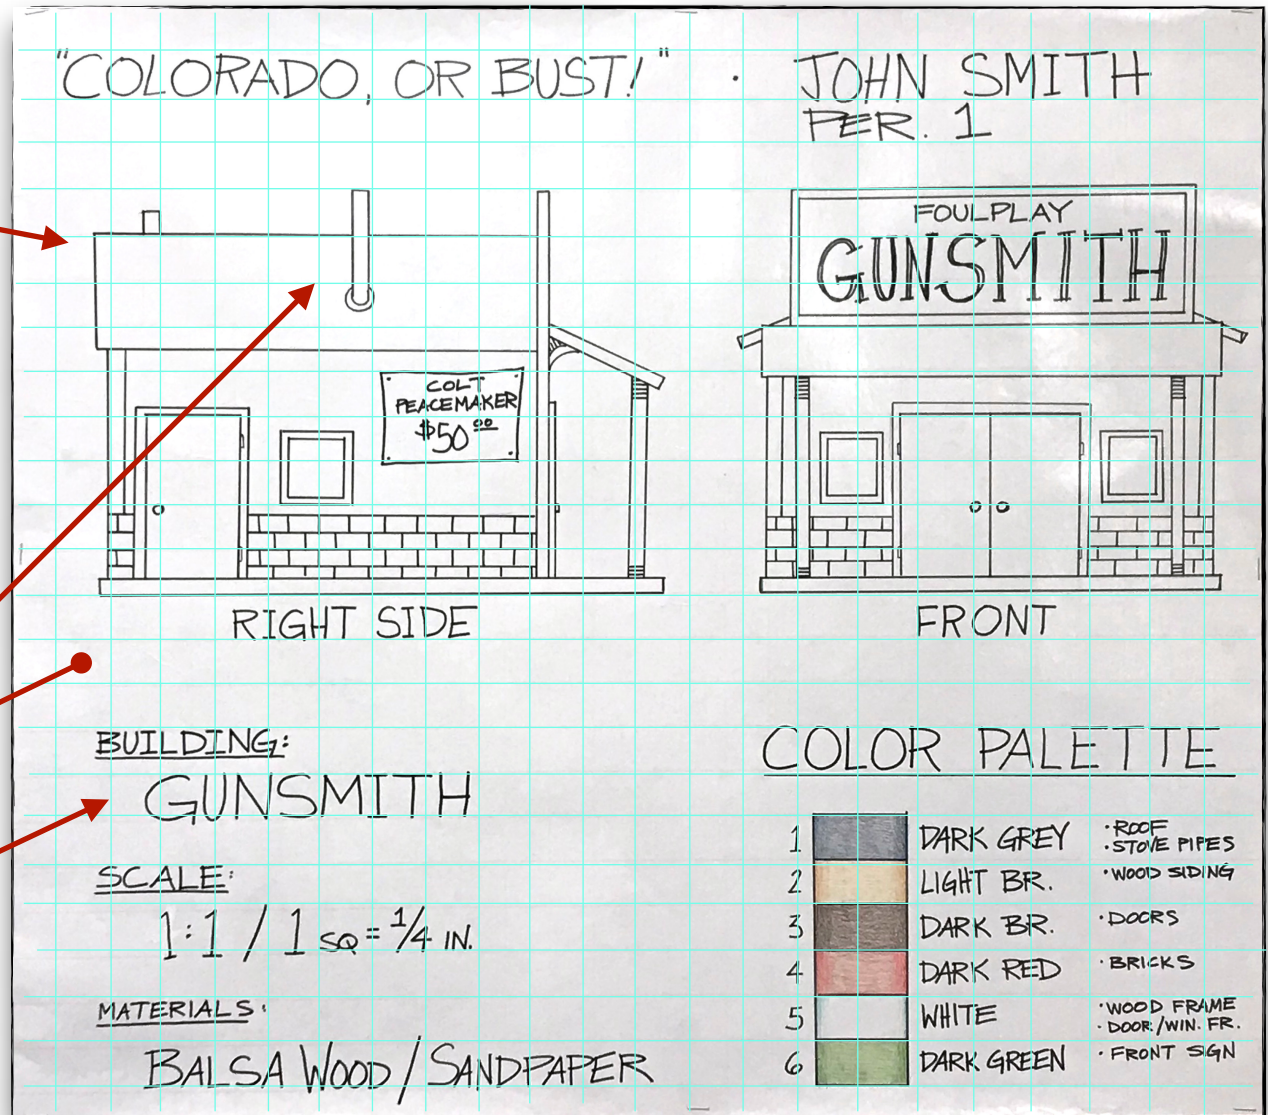 "COLORADO, OR BUST!" · JOHN SMITH
PER. 1
FOULPLAY
GUNSMITH
COLT
PEACEMAKER
$50 00
RIGHT SIDE
FRONT
BUILDING:
GUNSMITH
SCALE:
1:1 / 1 SQ = 1/4 IN.
MATERIALS:
BALSA WOOD / SANDPAPER
COLOR PALETTE
1 DARK GREY · ROOF
· STOVE PIPES
2 LIGHT BR. · WOOD SIDING
3 DARK BR. · DOORS
4 DARK RED · BRICKS
5 WHITE · WOOD FRAME
· DOOR./WIN. FR.
6 DARK GREEN · FRONT SIGN